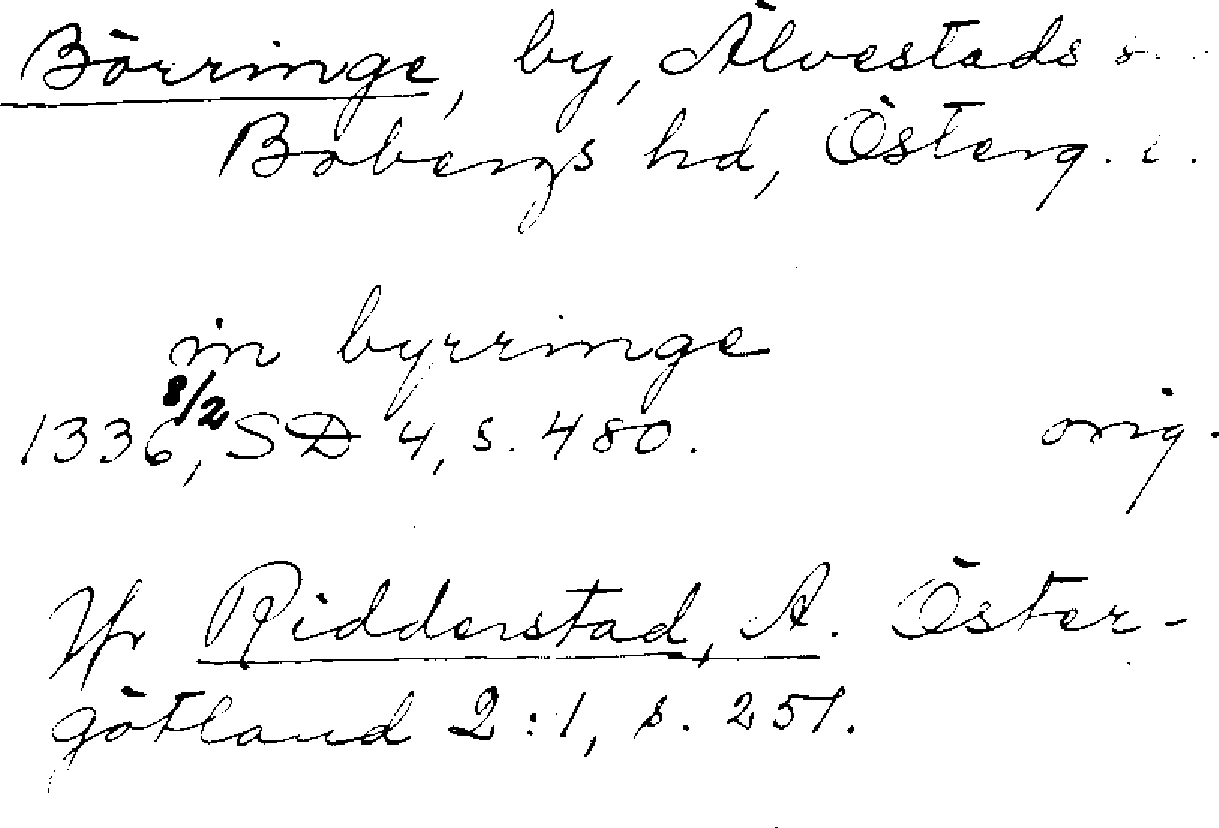 Börringe, by, Älvestads s
Bobergs hd, Österg. l.
in byrringe
1336 8/2, SD 4, s. 480. orig.
Jfr Ridderstad, A. Öster-
götland 2:1, s. 251.